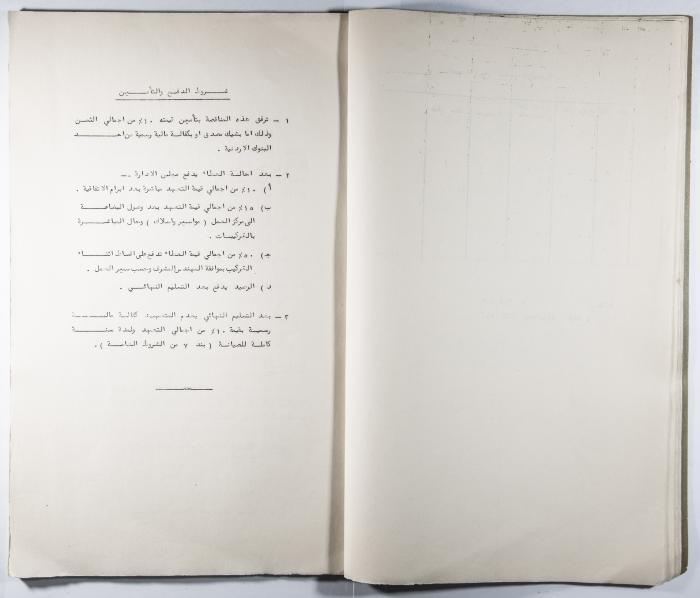 شروط الدفع والتأمين
١ – ترفق هذه المناقصة بتأمين قيمته ١٠٪ من اجمالي الثمن
وذلك اما بشيك مصدق او بكفالة مالية رسمية من احد
البنوك الاردنية .
٢ – بعد احالة العطاء يدفع مجلس الادارة :-
أ ) ١٠٪ من اجمالي قيمة التعهد مباشرة بعد ابرام الاتفاقية .
ب) ١٥٪ من اجمالي قيمة التعهد بعد وصول البضاعة
الى مركز العمل ( مواسير واسلاك ) وحال المباشرة
بالتركيبات .
جـ) ٥٠٪ من اجمالي قيمة العطاء تدفع على اقساط اثناء
التركيب بموافقة المهندس المشرف وحسب سير العمل .
د ) الرصيد يدفع بعد التسليم النهائي .
٣ – بعد التسليم النهائي يقدم المتعهد كفالة مالية
رسمية بقيمة ١٠٪ من اجمالي التعهد ولمدة سنة
كاملة للصيانة ( بند ٧ من الشروط العامة ) .